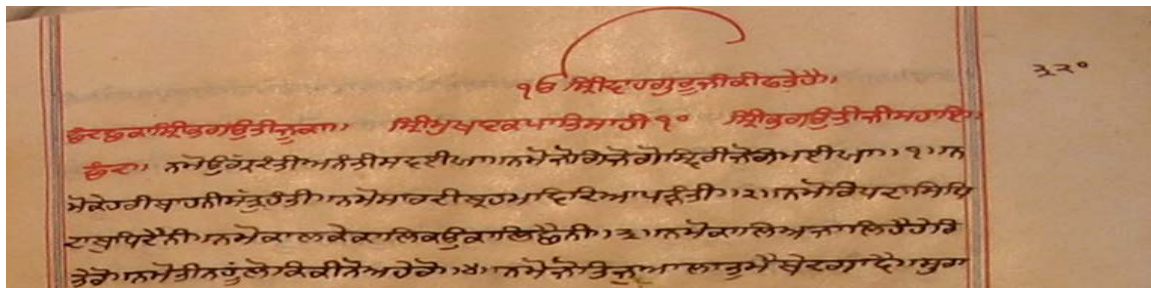 ੩੨੦
ੴ ਸ੍ਰੀ ਵਾਹਗੁਰੂ ਜੀ ਕੀ ਫਤੇ ਹੈ॥
ਛੰਦ ਛਕਾ ਸ੍ਰੀ ਭਗਉਤੀ ਜੂ ਕਾ॥ ਸ੍ਰੀ ਮੁਖਵਾਕ ਪਾਤਿਸਾਹੀ ੧੦ ਸ੍ਰੀ ਭਗਉਤੀ ਜੀ ਸਹਾਇ॥
ਛੰਦ॥ ਨਮੋ ਉਗ੍ਰਦੰਤੀ ਅਨੰਤੀ ਸਵਈਯਾ॥ ਨਮੋ ਜੋਗ ਜੋਗੇਸ੍ਵਰੀ ਜੋਗ ਮਈਯਾ॥੧॥ ਨ
ਮੋ ਕੇਹਰੀ ਬਾਹਨੀ ਸਤ੍ਰੁ ਹੰਤੀ॥ ਨਮੋ ਸਾਰਦੀ ਬ੍ਰਹਮ ਵਿਦਿਆ ਪੜੰਤੀ॥੨॥ ਨਮੋ ਰਿਧਦਾ ਸਿਧਿ
ਦਾ ਬੁਧਿ ਦੈਨੀ॥ ਨਮੋ ਕਾਲਕੇ ਕਾਲਿਕਉ ਕਾਲਿ ਛੈਨੀ॥੩॥ ਨਮੋ ਕਾਲਿ ਅਜਾਲਿ ਹੈ ਹੇਰਿ
ਤੇਰੋ॥ ਨਮੋ ਤੀਨਹੂੰ ਲੋਕਿ ਕੀਨੋ ਅਹੇਰੋ॥੪॥ ਨਮੋ ਜੋਤਿ ਜ੍ਵਾਲਾ ਤੁਮੈ ਬੇਦ ਗਾਵੈ॥ ਸੁਰਾ